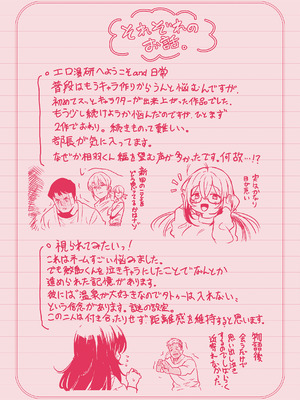 それぞれの
お話。
○エロ漫研へようこそand日常
普段はもうキャラ作りからうんと悩むんですが、
初めてスッとキャラクターが出来上がった作品でした。
もう少し続けようか悩んだのですが、ひとまず
2作でおわり。続きものって難しい。
部長が気に入ってます。
なぜか相羽くん編を望む声が多かったです。何故…!?
実はかなり
目が悪い
○視られてみたいっ!
これはネームすごい悩みました。
でも鮫島くんを泣きキャラにしたことでなんとか
進められた記憶があります。
彼には「温泉が大好きなのでタトゥーは入れない」
という信念があります。謎の設定。
この二人は付き合ったりせず距離感を維持すると思います。
物語後
会うだけで
思い出し泣き